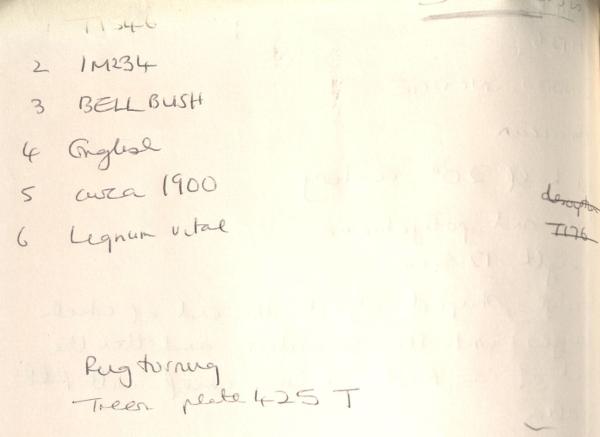 2 IM234
3 BELL BUSH
4 English
5 circa 1900
6 Lignum vitae
T176
Rug turning
Treen plate 425 T